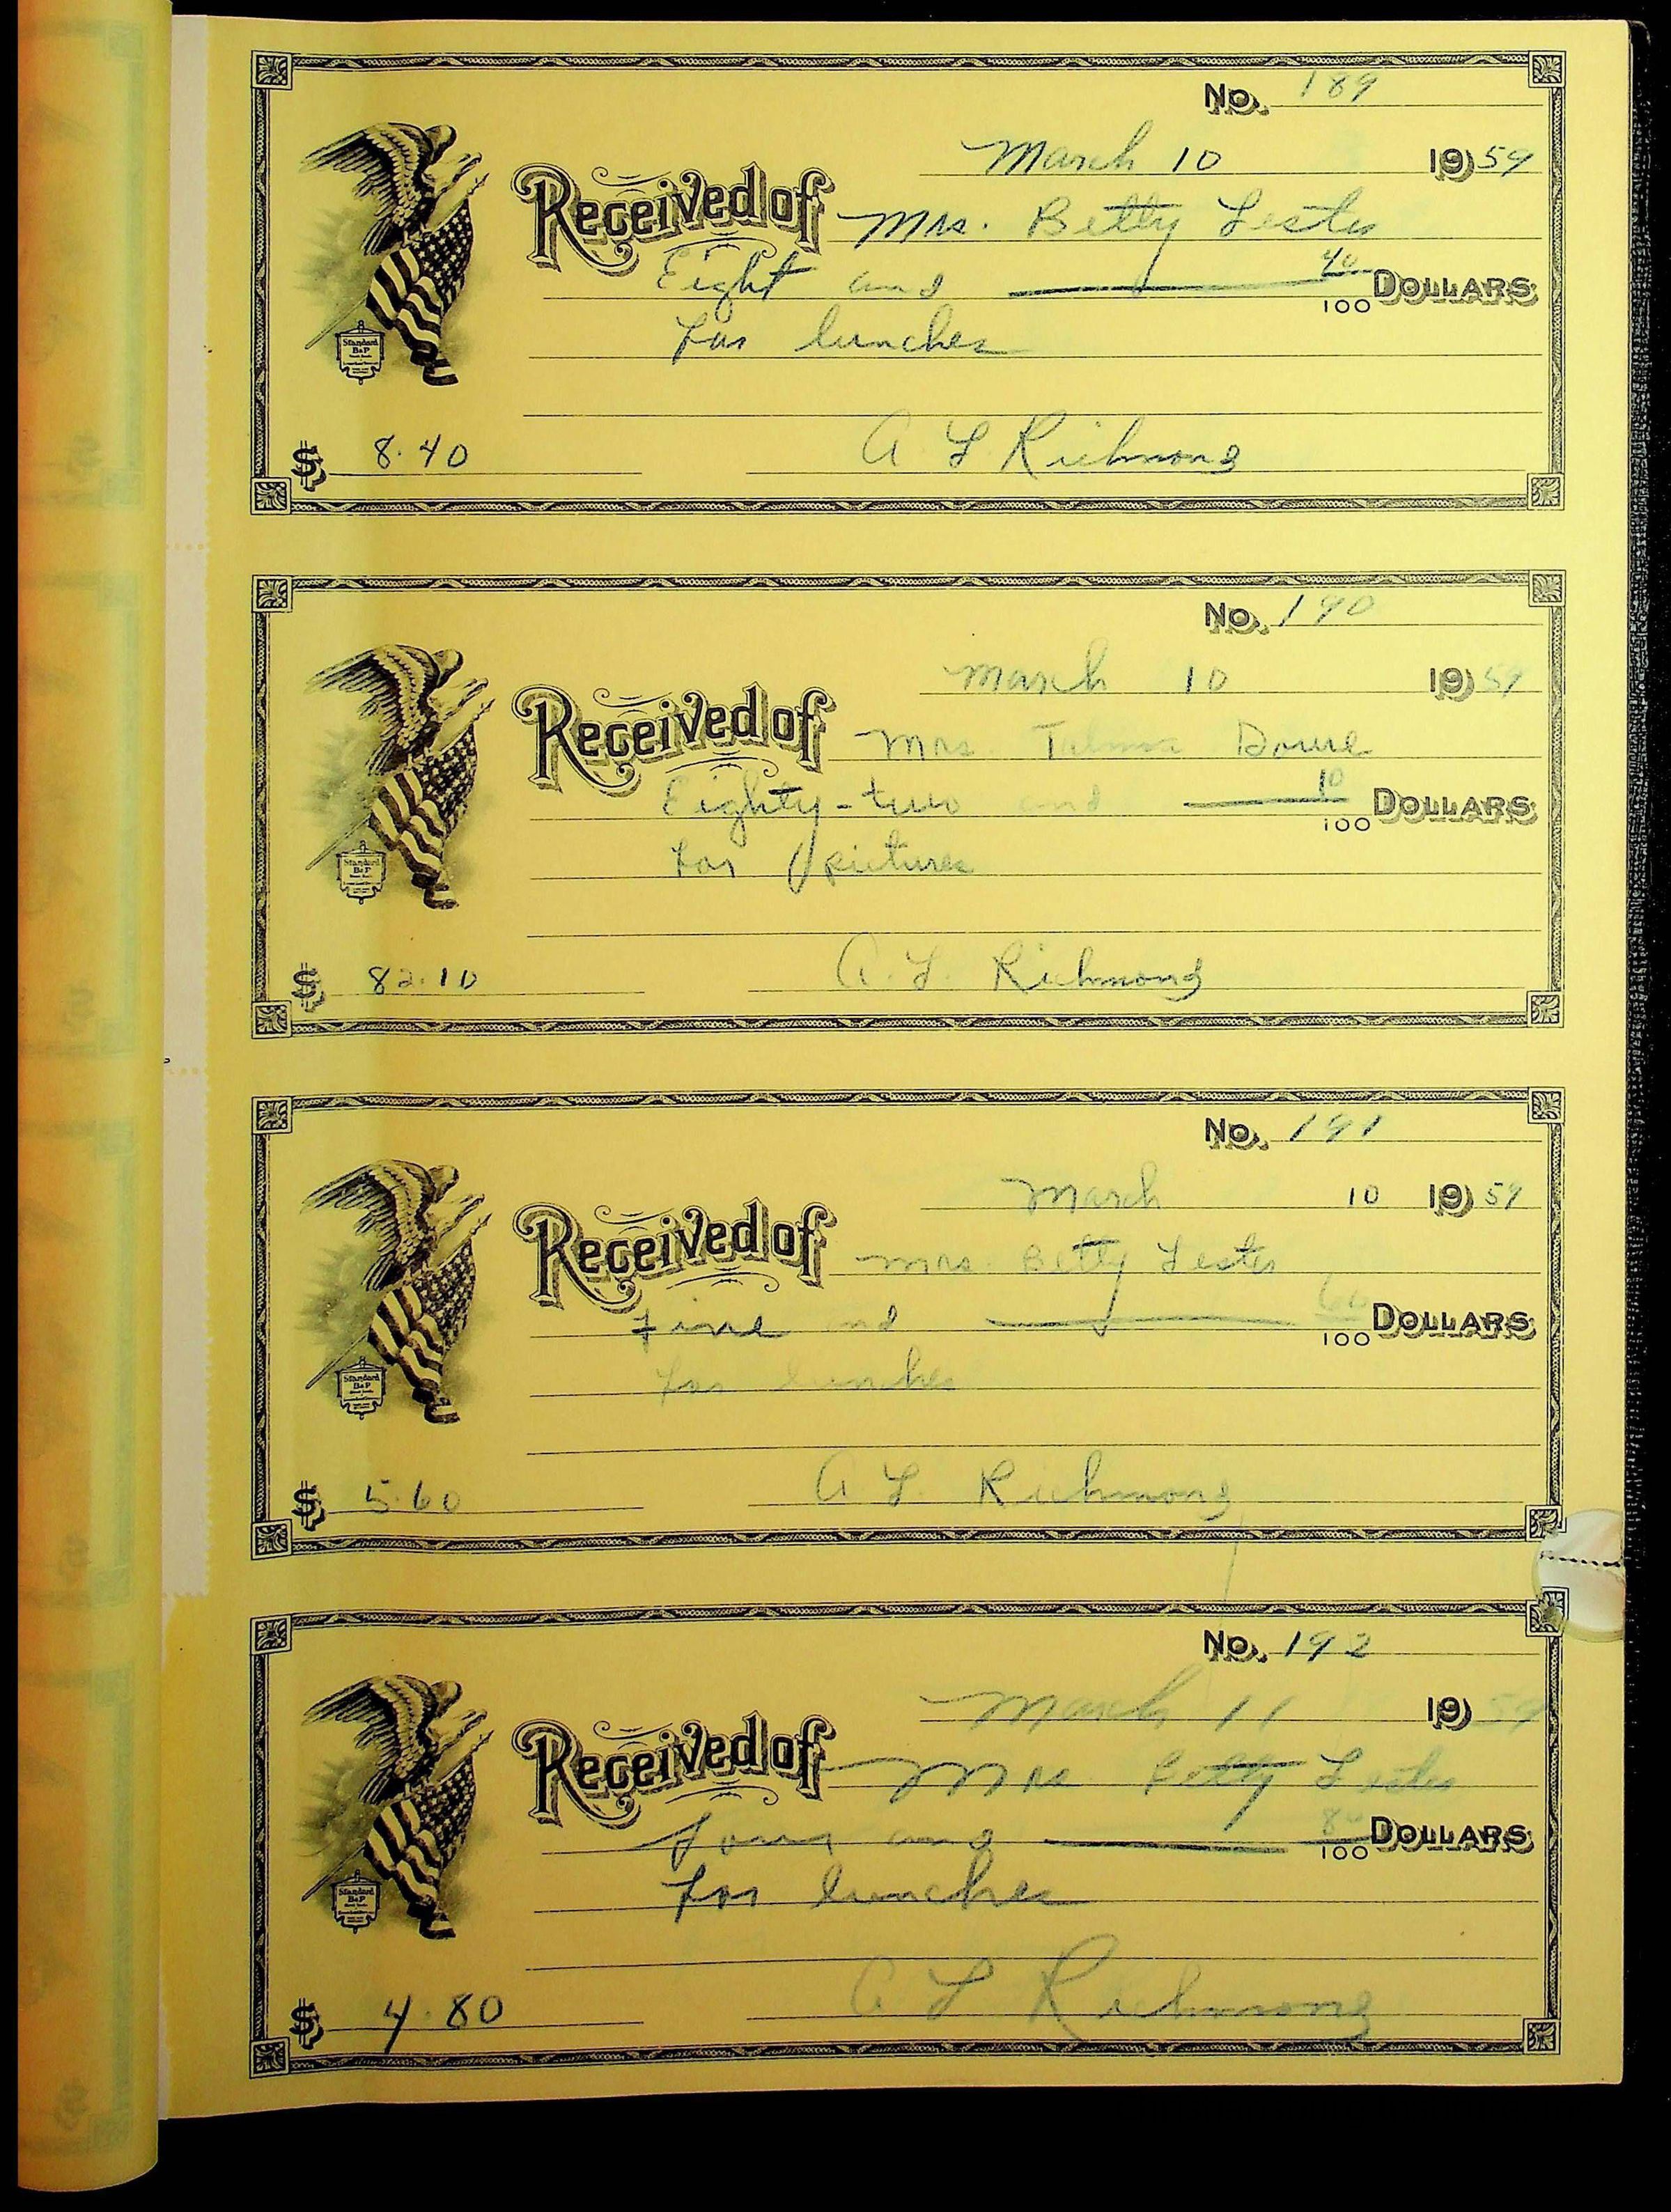 No. 189
March 10 1959
Received of Mrs. Betty Lester
Eight and 40/100 DOLLARS
For lunches
$ 8.40 A L Richmond
Standard B&P
No. 190
March 10 1959
Received of Mrs.
Eighty-two and 10/100 DOLLARS
For pictures
$ 82.10 A. L. Richmond
Standard B&P
No. 191
March 10 1959
Received of Mrs. Betty Lester
Five and 60/100 DOLLARS
For lunches
$ 5.60 A L Richmond
Standard B&P
No. 192
March 11 1959
Received of Mrs Betty Lester
Four and 80/100 DOLLARS
For lunches
$ 4.80 A L Richmond
Standard B&P